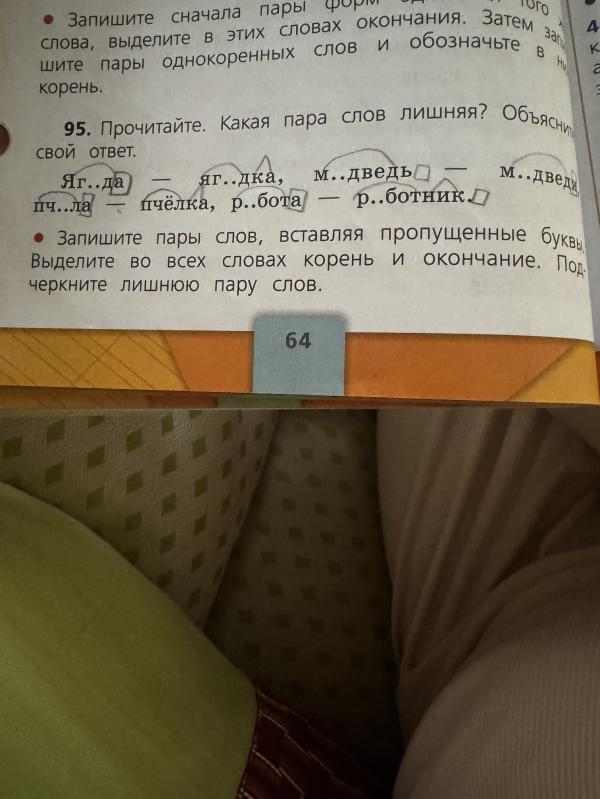 • Запишите сначала пары форм того
слова, выделите в этих словах окончания. Затем
шите пары однокоренных слов и обозначьте в
корень.
95. Прочитайте. Какая пара слов лишняя? Объясните
свой ответ.
Яг..да — яг..дка, м..дведь — м..дведи,
пч..ла — пчёлка, р..бота — р..ботник.
• Запишите пары слов, вставляя пропущенные буквы.
Выделите во всех словах корень и окончание. Под-
черкните лишнюю пару слов.
64
4